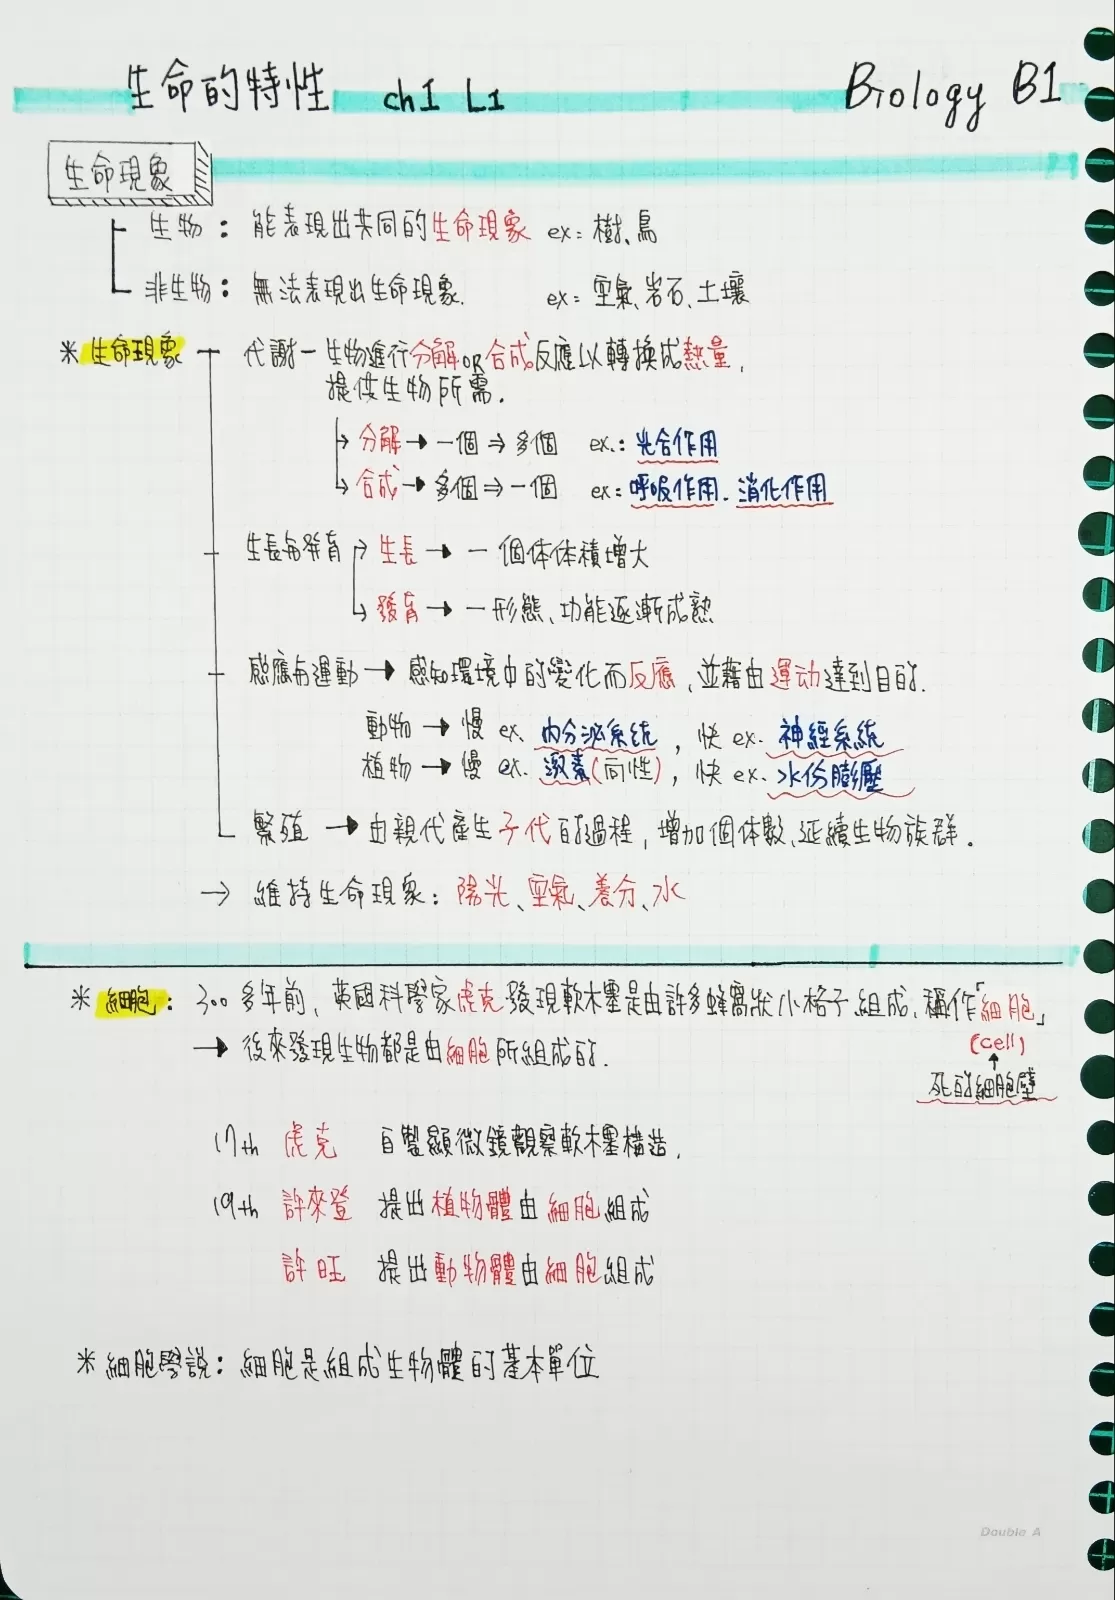 生命的特性 ch1 L1 Biology B1
生命現象
生物：能表現出共同的生命現象 ex：樹、鳥
非生物：無法表現出生命現象. ex：空氣、岩石、土壤
*生命現象 代謝－生物進行分解OR合成反應以轉換成熱量,
提供生物所需.
分解→一個⇒多個 ex.：光合作用
合成→多個⇒一個 ex：呼吸作用. 消化作用
生長與發育 生長→一個体体積增大
發育→一形態、功能逐漸成熟
感應與運動→感知環境中的變化而反應,並藉由運动達到目的.
動物→慢 ex. 內分泌系統, 快 ex. 神經系統
植物→慢 ex. 激素(向性), 快 ex. 水份膨壓
繁殖→由親代產生子代的過程,增加個体數、延續生物族群.
→維持生命現象：陽光、空氣、養分、水
*細胞：300多年前,英國科學家虎克發現軟木塞是由許多蜂窩狀小格子組成,稱作「細胞」
(cell)
→後來發現生物都是由細胞所組成的.
死的細胞壁
17th 虎克 自製顯微鏡觀察軟木塞構造.
19th 許來登 提出植物體由細胞組成
許旺 提出動物體由細胞組成
*細胞學說：細胞是組成生物體的基本單位
Double A